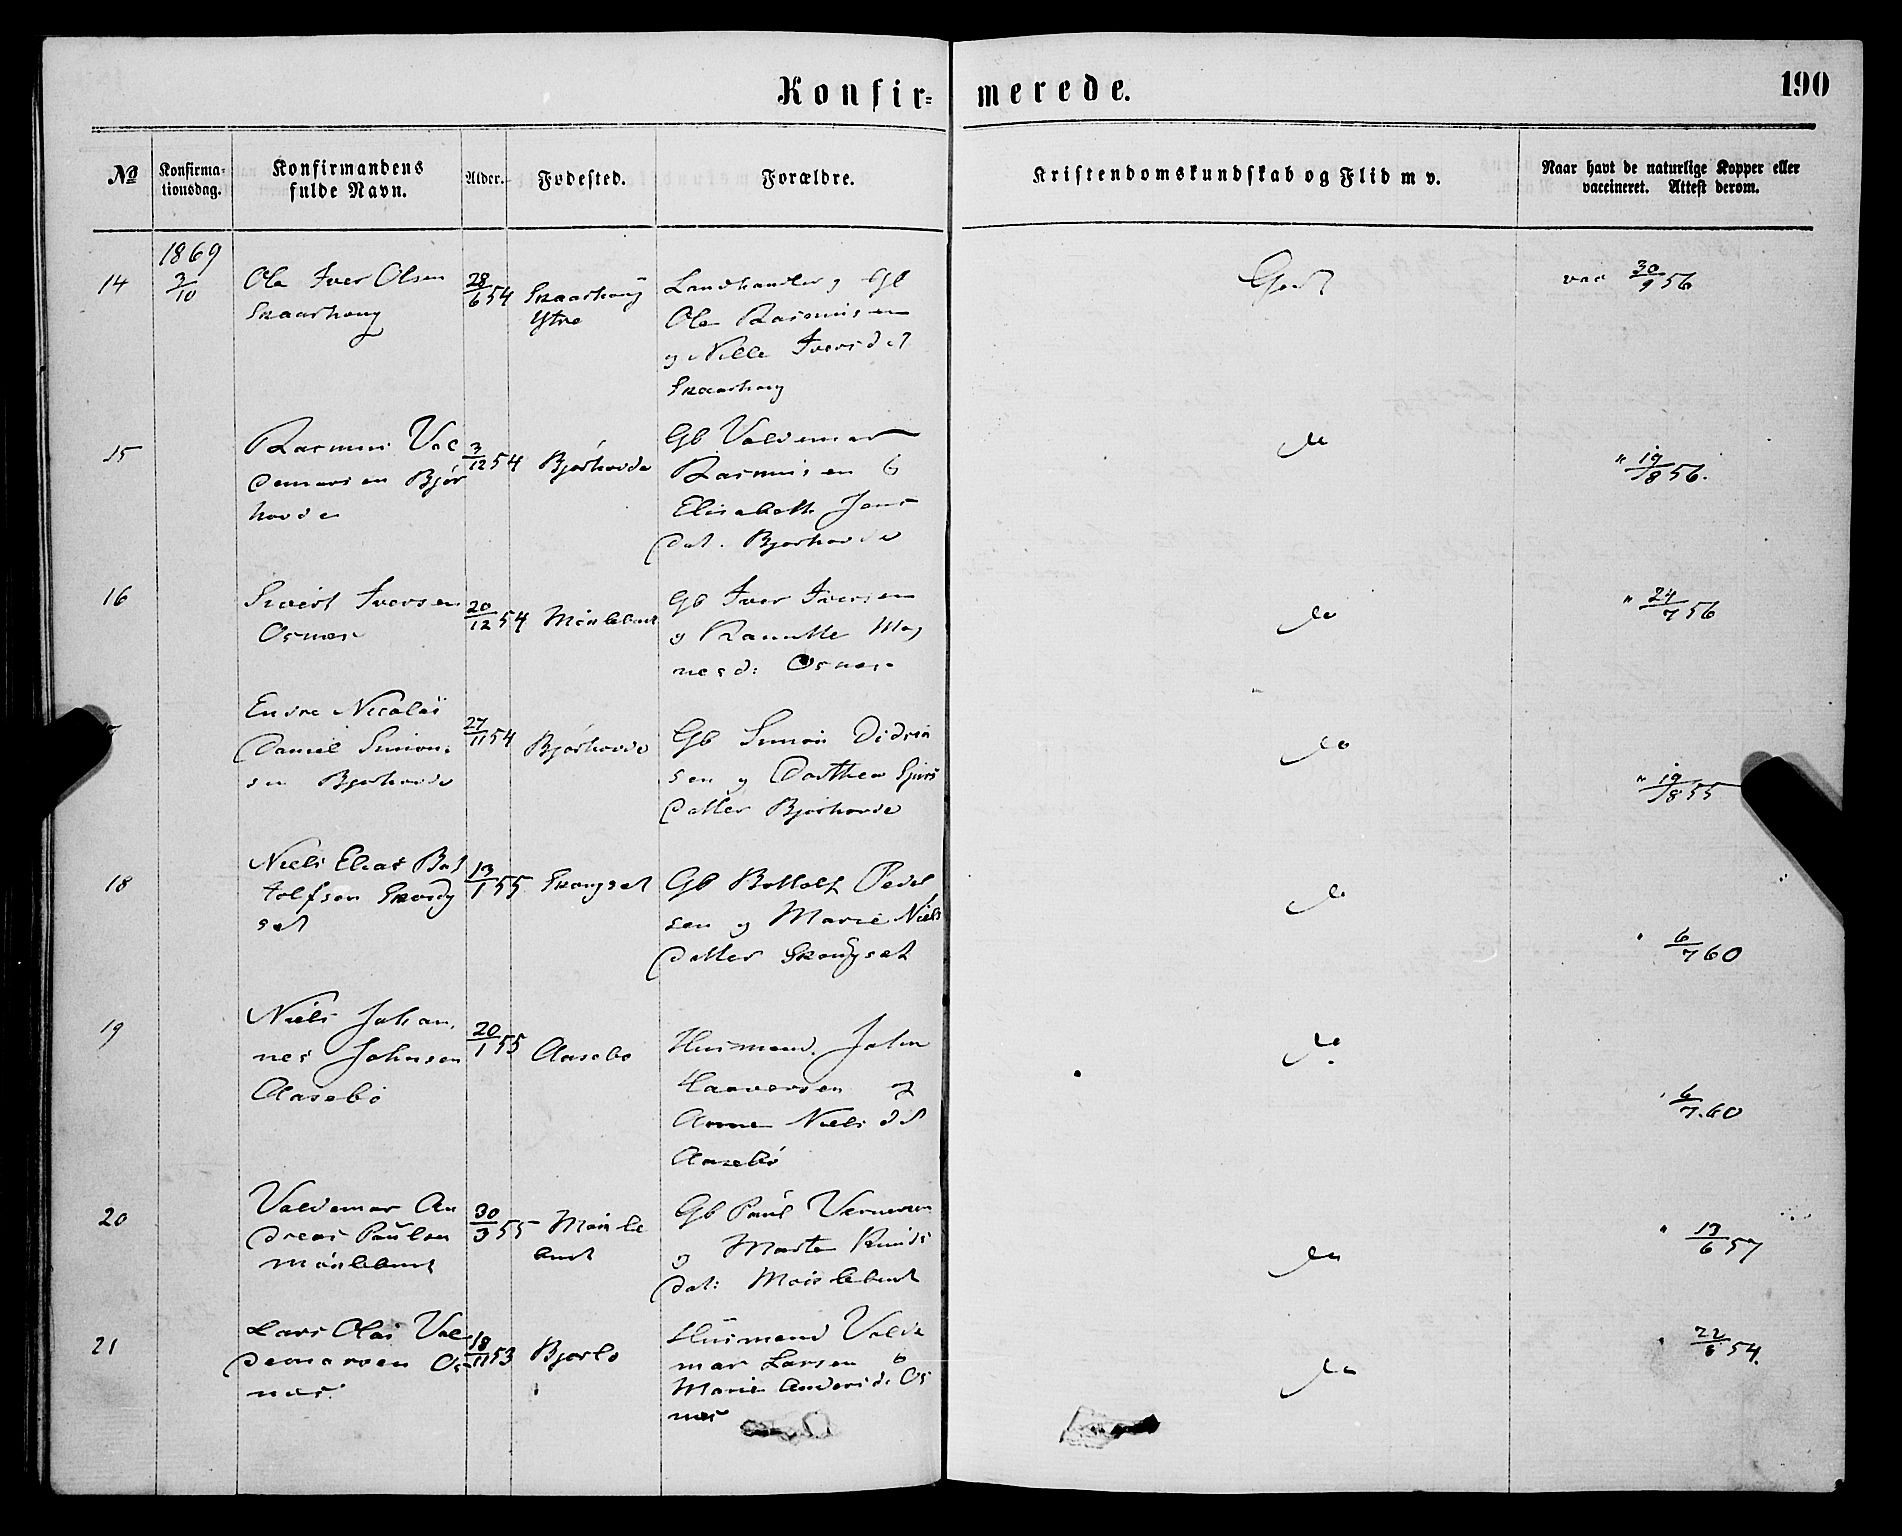 Konfir= merede.
190
№
Konfirma-
tionsdag.
Konfirmandens
fulde Navn.
Alder.
Fødested.
Forældre.
Kristendomskundskab og Flid m v.
Naar havt de naturlige Kopper eller
vaccineret. Attest derom.
1869
14
3/10
Ole Iver Olsen
Skaarhoug
28/6 54
Skaarhoug
Ytre
Landhandler, Gb
Ole Rasmusen
og Nille Iversdt
Skaarhoug
Godt
vac 30/9 56
15
Rasmus Val
demarsen Bjør
hovde
3/12 54
Bjørhovde
Gb Valdemar
Rasmusen &
Elisabeth Jens
Dat. Bjørhovde
do
" 19/8 56.
16
Sivert Iversen
Osnes
20/12 54
Moislebust
Gb Iver Iversen
og Magnesd: Osnes.
do
" 24/7 56
Endre Nicolai
Daniel Simon
sen Bjørhovde
27/11 54
Bjørhovde
Gb Simon Didrik
sen og Dorthea
Datter Bjørhovde
do
" 19/8 55
18
Niels Elias Bot
tolfsen Skoug
set
13/1 55
Skougset
Gb Bottolf Peder
sen og Marie Niels
Datter Skougset
do
" 6/7 60
19
Niels Johan
nes Johnsen
Aasebø
20/1 55
Aasebø
Husmand John
og
Anne Niels dt
Aasebø
do
" 6/7. 60
20
Valdemar An
dreas Paulsen
Moislebust
30/3 55
Moisle
bust
Gb Paul
og Marte Knuds
Dat: Moislebust
do
" 13/6 57
21
Lars Olai Val
demarsen Os
nes.
18/11 53
Bjørlo
Husmand Valde
mar Larsen &
Marie Andersd: Os
nes
do
" 22/6 54.